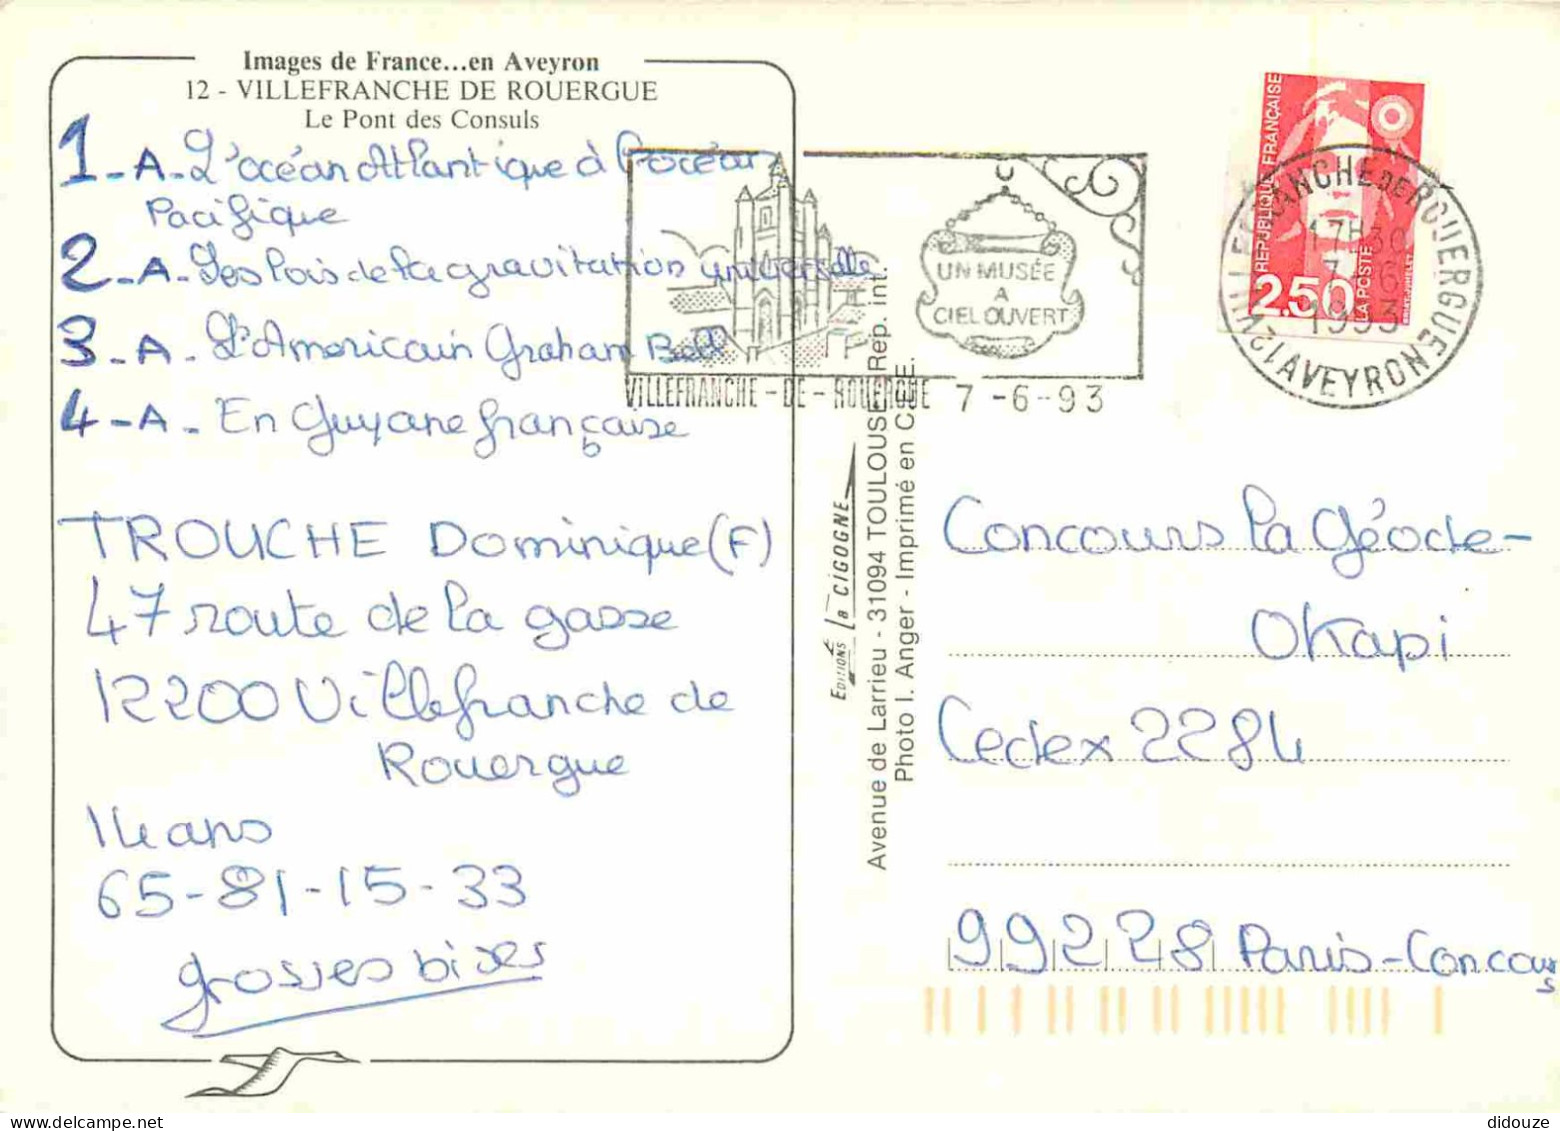 Images de France...en Aveyron
12 - VILLEFRANCHE DE ROUERGUE
Le Pont des Consuls
1 - A - L'océan Atlantique à l'océan
Pacifique
2 - A - Les lois de la gravitation universelle
3 - A - L'Americain Graham Bell
4 - A - En Guyane française
TROUCHE Dominique (F)
47 route de la gasse
12200 Villefranche de
Rouergue
14 ans
65-81-15-33
grosses bises
UN MUSÉE
A
CIEL OUVERT
VILLEFRANCHE - DE - ROUERGUE 7 -6 -93
REPUBLIQUE FRANÇAISE
2.50
LA POSTE
VILLEFRANCHE DE ROUERGUE
17H30
7 - 6
1993
12 AVEYRON
EDITIONS La CIGOGNE
Avenue de Larrieu - 31094 TOULOUSE Rep. int.
Photo I. Anger - Imprimé en C.E.E.
Concours la Géode-
Okapi
Cedex 2284
99228 Paris-Concours
didouze